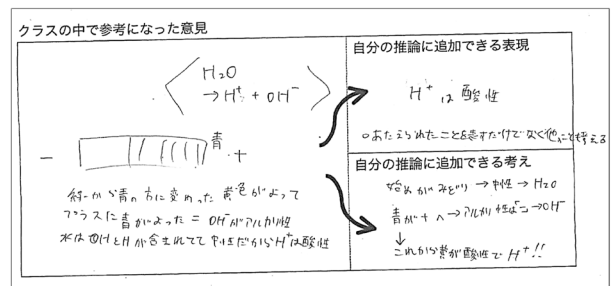 クラスの中で参考になった意見
H₂O
→H⁺ + OH⁻
青
− +
青の方に変わった 黄色がよって
プラスに青がよった = OH⁻がアルカリ性
水はOHとHが含まれてて中性だからH⁺は酸性
自分の推論に追加できる表現
H⁺は酸性
○あたえられたことを表すだけでなく他のことも考える
自分の推論に追加できる考え
始めがみどり→中性→H₂O
青が+へ→アルカリ性→OH⁻
↓
これから黄が酸性でH⁺!!